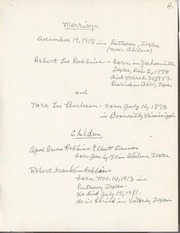 4.
Marriage
December 19, 1908 in Putnam, Texas
(near Abilene)
Robert Lee Robbins - born in Jacksonville,
Texas, Feb. 2, 1884
died March 30, 1950
Buried in Alvy, Texas
and
Tara Lee Burleson - born July 16, 1892
in Booneville, Mississippi
Children
Opal Irene Robbins Elliott Farmer
born Jan. 1911 in Abilene, Texas
Robert Franklin Robbins
born Nov. 14, 1912 in
Putnam, Texas
He died July 15, 1951.
He is buried in Victoria, Texas